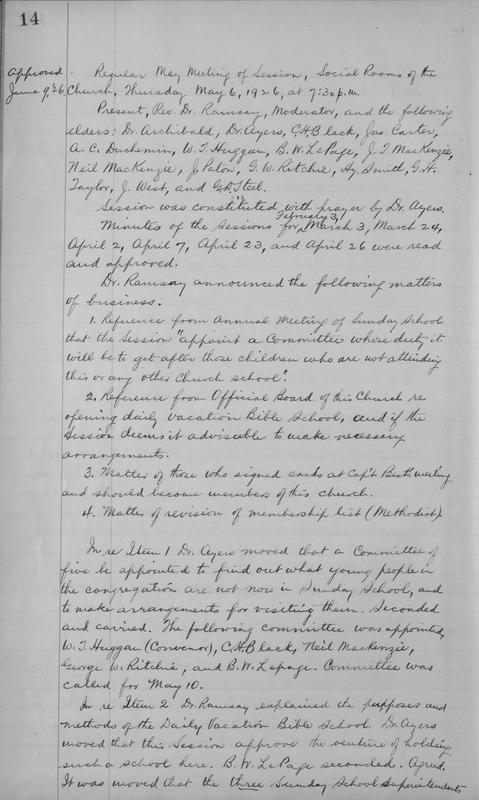 14
Approved
June 9, '26
Regular May Meeting of Session, Social Rooms of the
Church, Thursday May 6, 1926, at 7:30 p.m.
Present, Rev. Dr. Ramsay, Moderator, and the following
elders: Dr. Archibald, Dr. Ayers, C.H. Black, Jas. Carter,
A. C. Duchemin, W. T. Huggan, B. W. LePage, J. T. MacKenzie,
Neil MacKenzie, J. Paton, G. W. Ritchie, Hy. Smith, G. H.
Taylor, J. West, and G.A. Steel.
Session was constituted with prayer by Dr. Ayers.
February 3,
Minutes of the Sessions for March 3, March 24,
April 2, April 7, April 23, and April 26 were read
and approved.
Dr. Ramsay announced the following matters
of business.
1. Reference from Annual Meeting of Sunday School
that the Session "appoint a Committee whose duty it
will be to get after those children who are not attending
this or any other Church school".
2. Reference from Official Board of this Church re
opening daily Vacation Bible School, and if the
Session deems it advisable to make necessary
arrangements.
3. Matter of those who signed cards at Cap't Best's meeting
and should become members of this church.
4. Matter of revision of membership list (Methodist).
In re Item 1 Dr. Ayers moved that a Committee of
five be appointed to find out what young people in
the congregation are not now in Sunday School, and
to make arrangements for visiting them. Seconded
and carried. The following committee was appointed,
W. T. Huggan (Convenor), C.H. Black, Neil MacKenzie,
George W. Ritchie, and B. W. Lepage. Committee was
called for May 10.
In re Item 2 Dr. Ramsay explained the purposes and
methods of the Daily Vacation Bible School. Dr. Ayers
moved that this Session approve the venture of holding
such a school here. B. W. LePage seconded. Agreed.
It was moved that the three Sunday School Superintendents